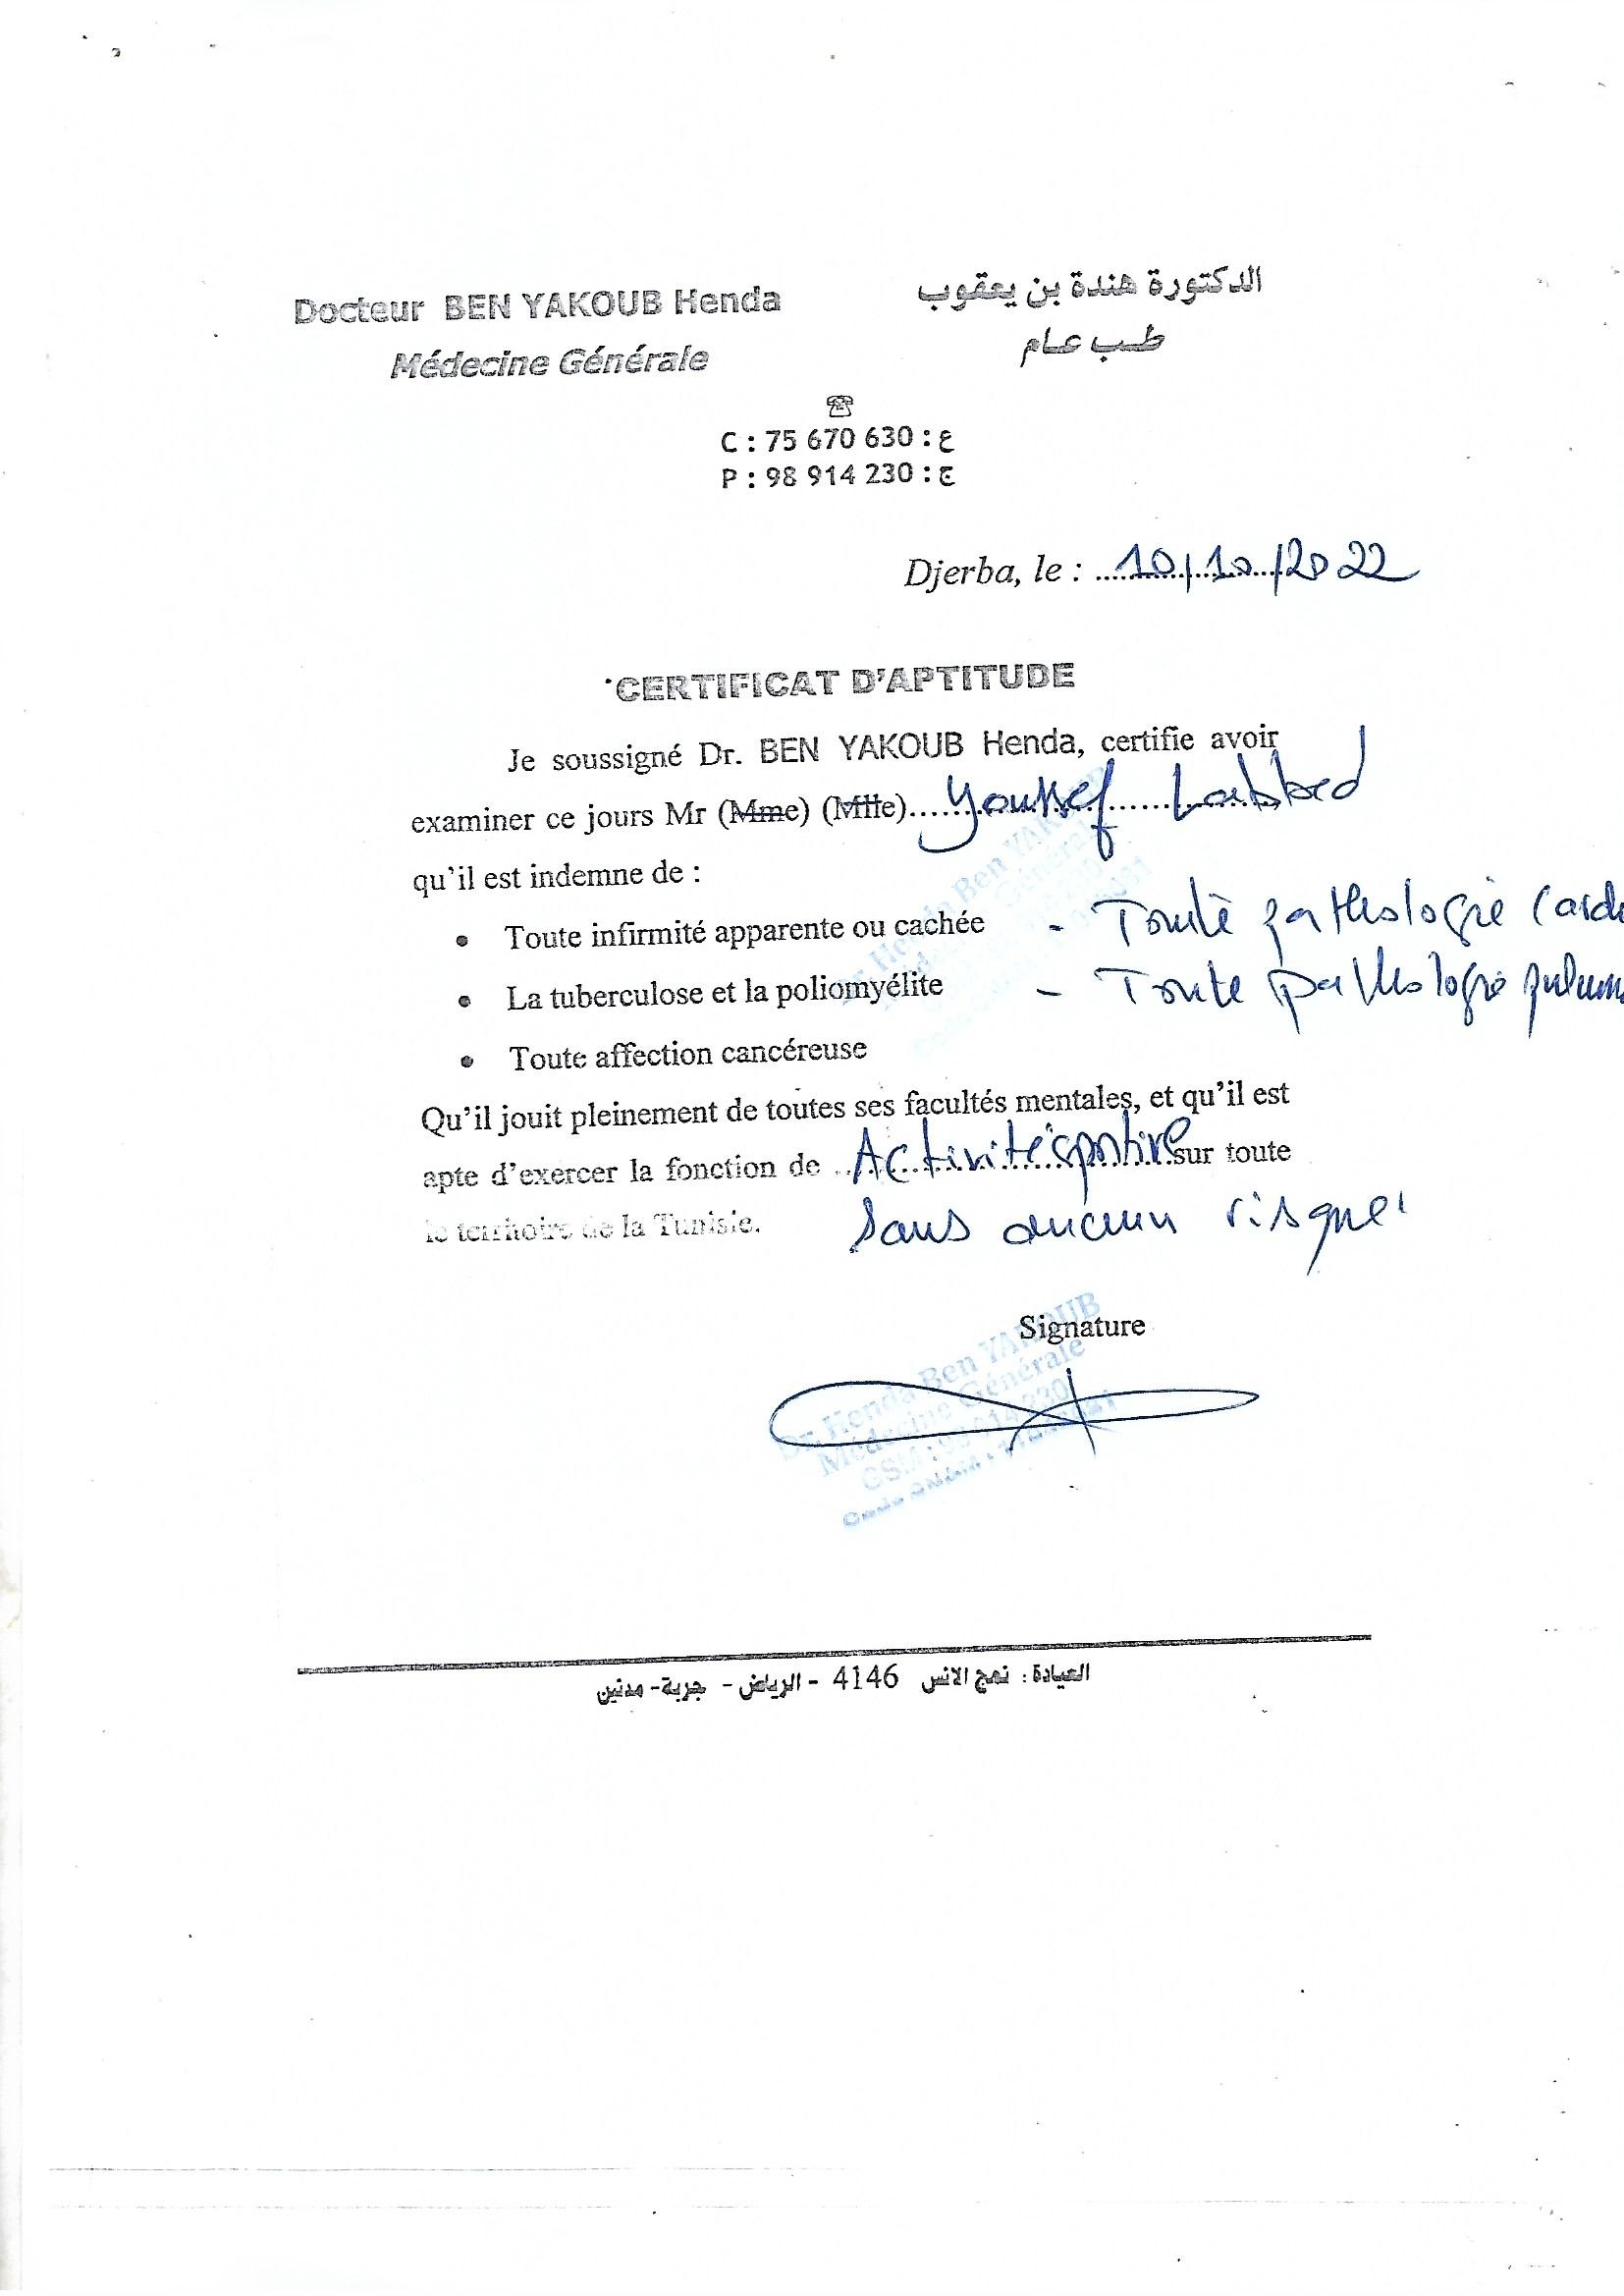 Docteur BEN YAKOUB Henda
Médecine Générale
الدكتورة هندة بن يعقوب
طب عام
C : 75 670 630 : ع
P : 98 914 230 : ج
Djerba, le : 10/10/2022
CERTIFICAT D'APTITUDE
Je soussigné Dr. BEN YAKOUB Henda, certifie avoir
examiner ce jours Mr (Mme) (Mlle) Youssef Labbed
qu'il est indemne de :
• Toute infirmité apparente ou cachée - Toute pathologie Card
• La tuberculose et la poliomyélite - Toute pathologie pulum
• Toute affection cancéreuse
Qu'il jouit pleinement de toutes ses facultés mentales, et qu'il est
apte d'exercer la fonction de Activité sportive sur toute
le territoire de la Tunisie. sans aucun risque
Signature
Dr. Henda Ben YAKOUB
Médecine Générale
العيادة : نهج الانس 4146 - الرياض - جربة - مدنين